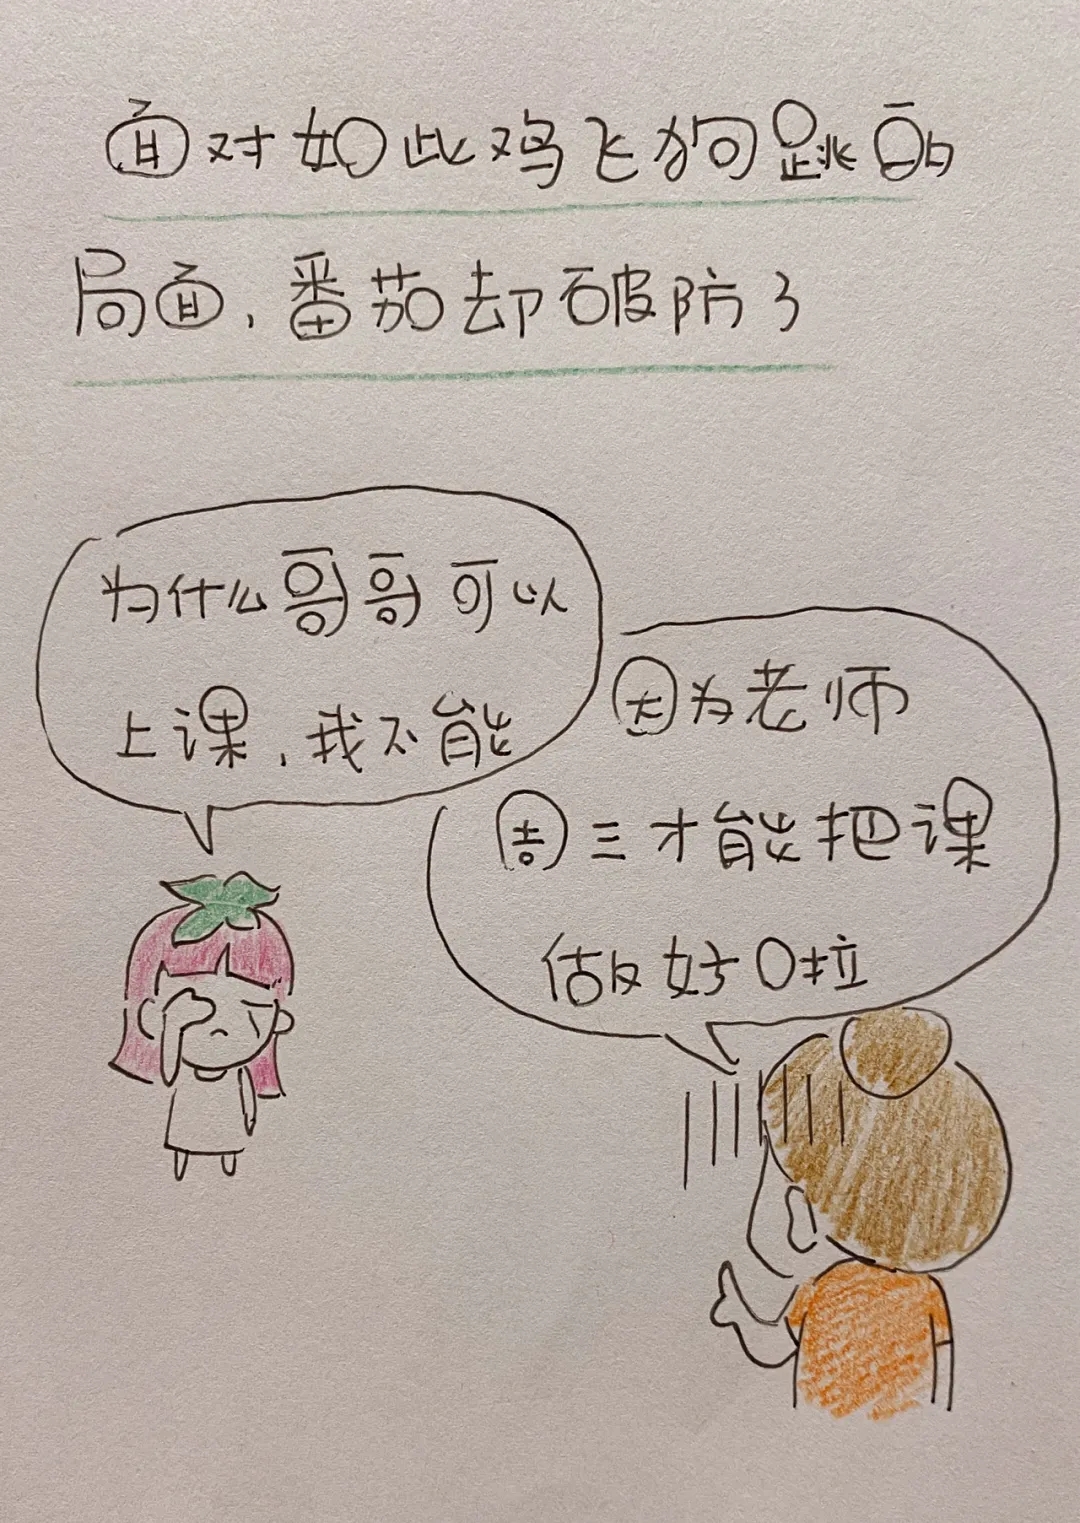 面对如此鸡飞狗跳的
局面,番茄却破防了
为什么哥哥可以
上课,我不能
因为老师
周三才能把课
做好啦